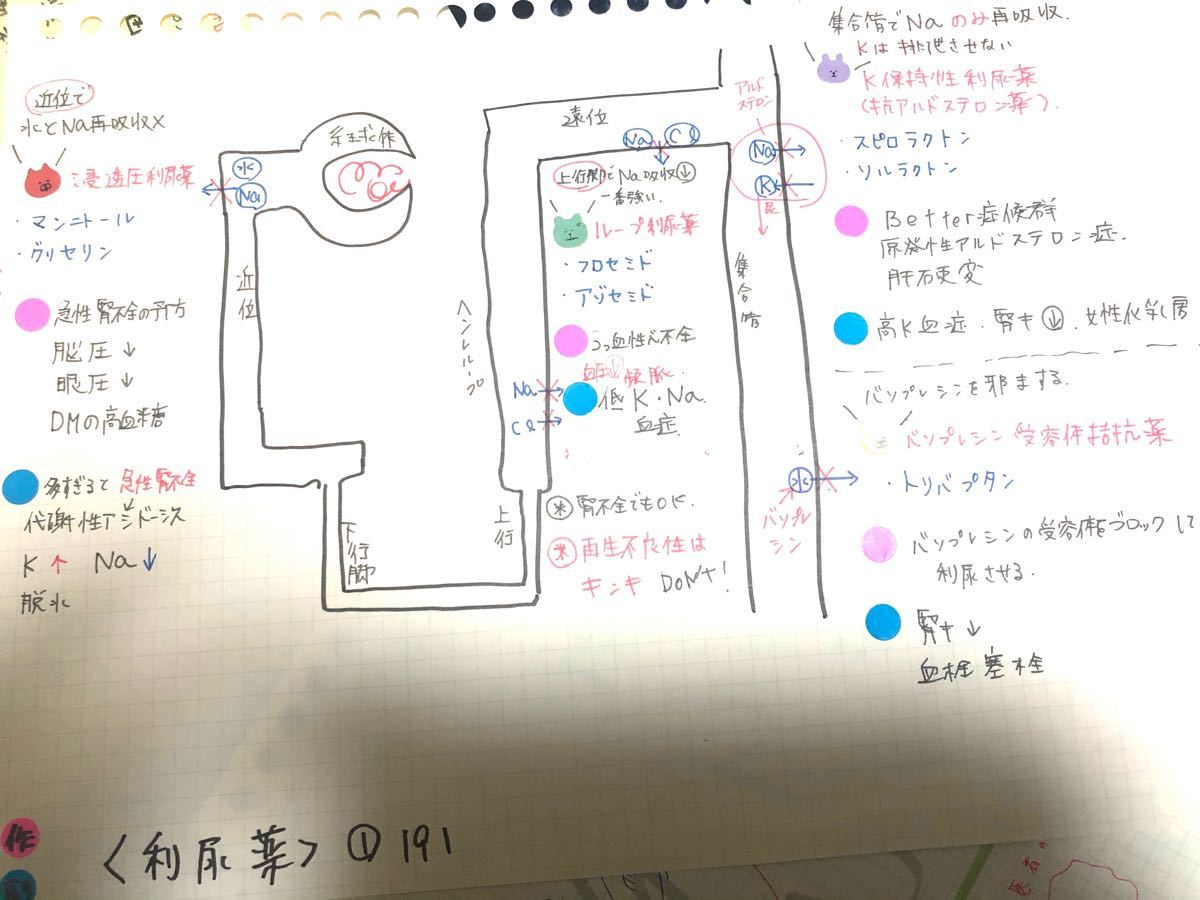 近位で
水とNa再吸収×
浸透圧利尿薬
・マンニトール
・グリセリン
急性腎不全の予方
脳圧↓
眼圧↓
DMの高血糖
多すぎると急性腎不全
代謝性アシドーシス
K↑ Na↓
脱水
糸球体
水
Na
近位
ヘンレループ
下行脚
上行
遠位
Na Cl
上行脚でNa吸収↓
一番強い
ループ利尿薬
・フロセミド
・アゾセミド
うっ血性心不全
血圧↓ 頻脈
Na
Cl
低K・Na
血症
※腎不全でもOK.
※再生不良性は
キンキ DON'T!
アルド
ステロン
Na
K
尿
集合管
水
バソプレ
シン
集合管でNaのみ再吸収.
Kは排泄させない
K保持性利尿薬
(抗アルドステロン薬).
・スピロラクトン
・ソルラクトン
Better症候群
原発性アルドステロン症.
肝硬変
高K血症・腎キ↓・女性化乳房
バソプレシンを邪まする.
バソプレシン受容体拮抗薬
・トリバプタン
バソプレシンの受容体をブロックして
利尿させる.
腎キ↓
血栓塞栓
作
〈利尿薬〉①191